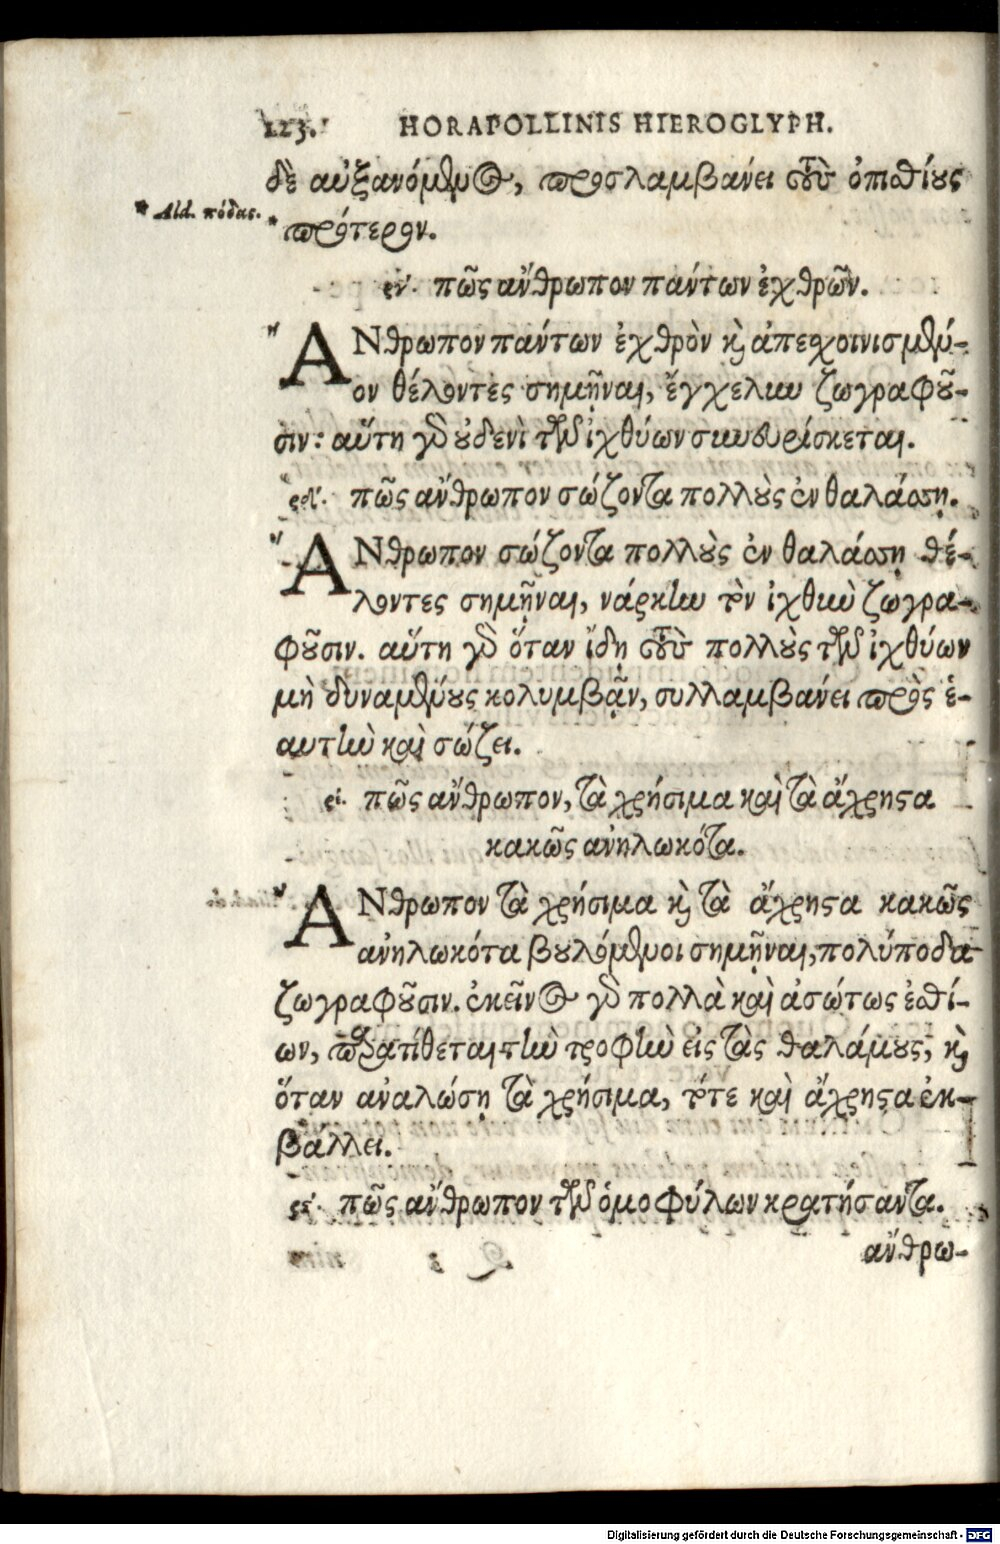 123. HORAPOLLINIS HIEROGLYPH.
δὲ αὐξανόμενος, προσλαμβάνει τοὺς ὀπισθίους
* Ald. πόδας.
* πρότερον.
ϙγ΄. πῶς ἄνθρωπον πάντων ἐχθρῶν.
ἌΝθρωπον πάντων ἐχθρὸν καὶ ἀπεσχοινισμέν-
ον θέλοντες σημῆναι, ἔγχελιω ζωγραφοῦ-
σιν: αὕτη γὰρ οὐδενὶ τῶν ἰχθύων συνευρίσκεται.
ϙδ΄. πῶς ἄνθρωπον σώζοντα πολλοὺς ἐν θαλάσσῃ.
ἌΝθρωπον σώζοντα πολλοὺς ἐν θαλάσσῃ θέ-
λοντες σημῆναι, νάρκην τὸν ἰχθιὼ ζωγρα-
φοῦσιν. αὕτη γὰρ ὅταν ἴδῃ τοὺς πολλοὺς τῶν ἰχθύων
μὴ δυναμένους κολυμβᾷν, συλλαμβάνει πρὸς ἑ-
αυτὴν καὶ σώζει.
ϙε΄. πῶς ἄνθρωπον, τὰ χρήσιμα καὶ τὰ ἄχρηστα
κακῶς ἀνηλωκότα.
ἌΝθρωπον τὰ χρήσιμα καὶ τὰ ἄχρηστα κακῶς
ἀνηλωκότα βουλόμενοι σημῆναι, πολύποδα
ζωγραφοῦσιν. ἐκεῖνος γὰρ πολλὰ καὶ ἀσώτως ἐσθί-
ων, παρατίθεται τὴν τροφὴν εἰς τὰς θαλάμους, καὶ
ὅταν ἀναλώσῃ τὰ χρήσιμα, τότε καὶ ἄχρηστα ἐκ-
βάλλει.
ϙϛ΄. πῶς ἄνθρωπον τῶν ὁμοφύλων κρατήσαντα.
ἄνθρω-
Digitalisierung gefördert durch die Deutsche Forschungsgemeinschaft - DFG